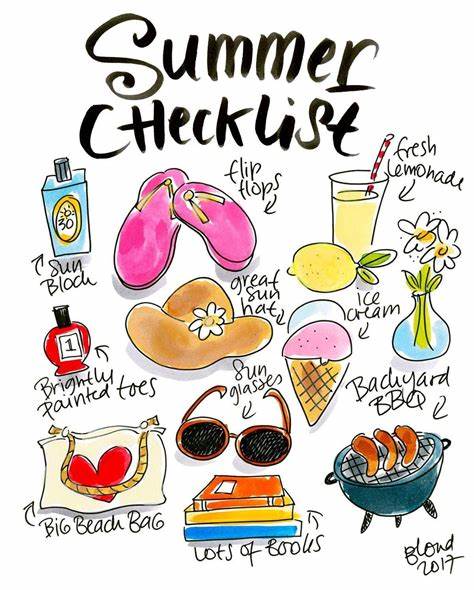 Summer
Checklist
flip
flops
fresh
lemonade
30
Sun
Block
great
sun
hat
ice
cream
1
Brightly
painted toes
Sun
glasses
Backyard
BBQ
Big Beach Bag
Lots of Books
Blond
2017